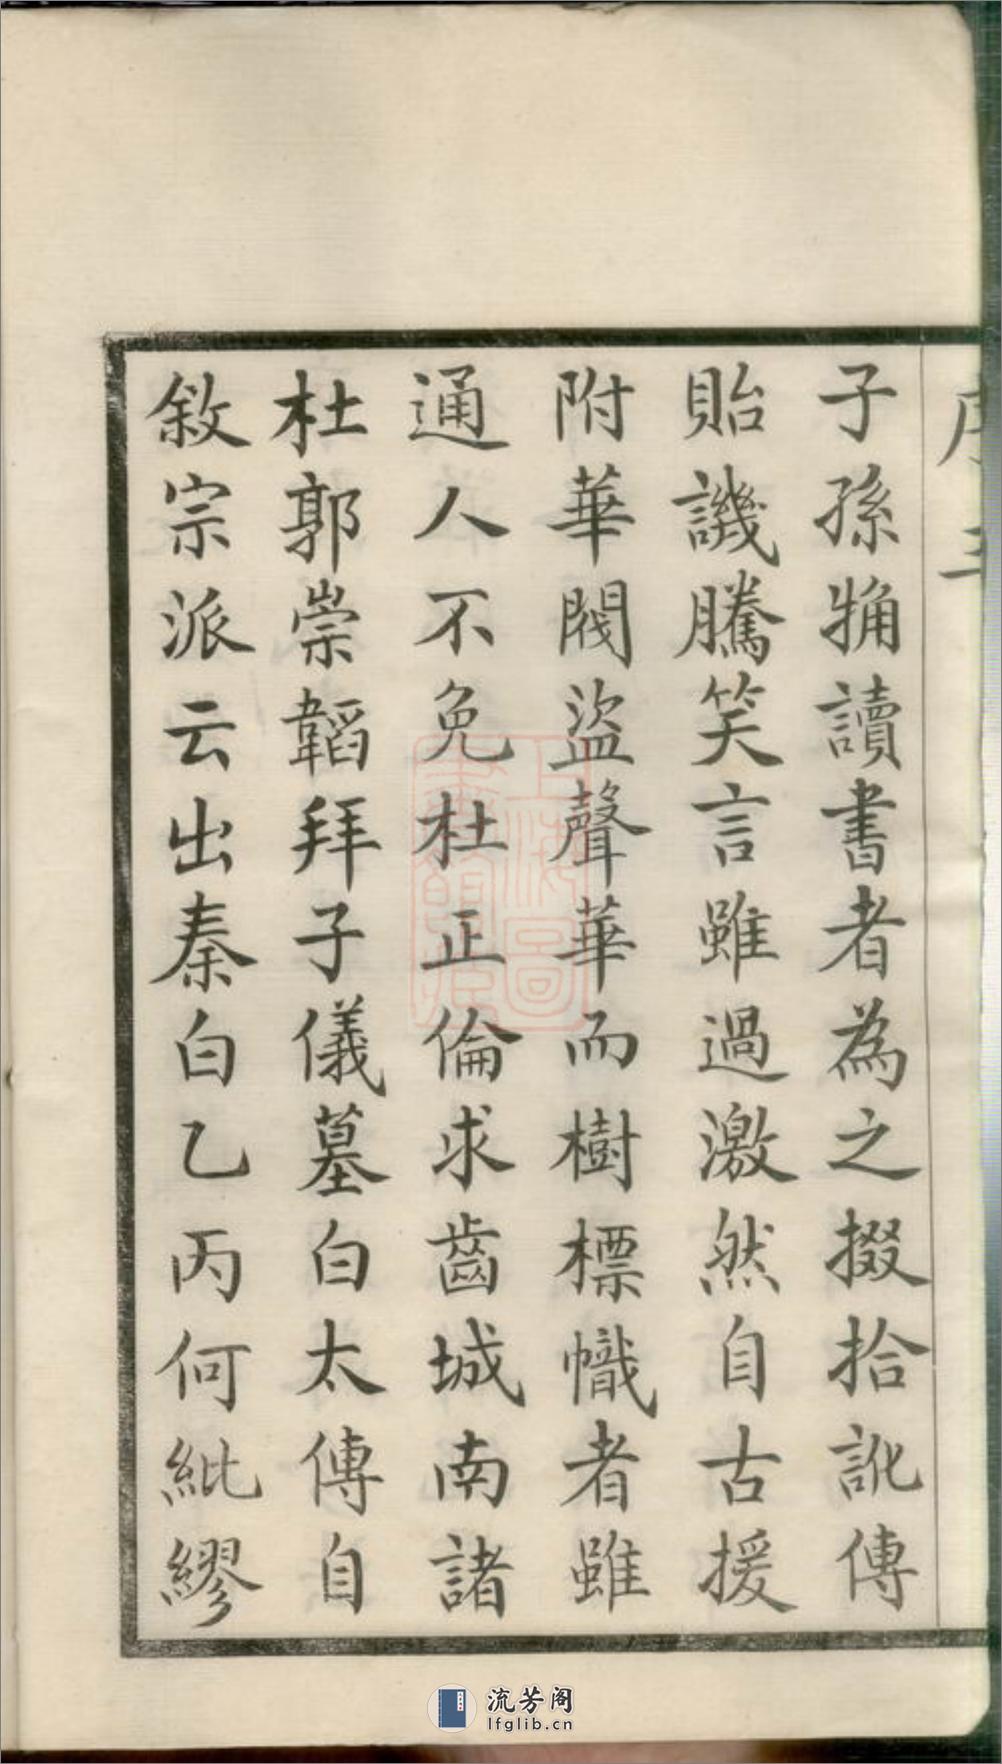 子孫觕讀書者為之掇拾訛傳
貽譏騰笑言雖過激然自古援
附華閥盜聲華而樹標幟者雖
通人不免杜正倫求齒城南諸
杜郭崇韜拜子儀墓白太傅自
敘宗派云出秦白乙丙何紕繆
上海圖
書館藏
流芳阁
lfglib.cn